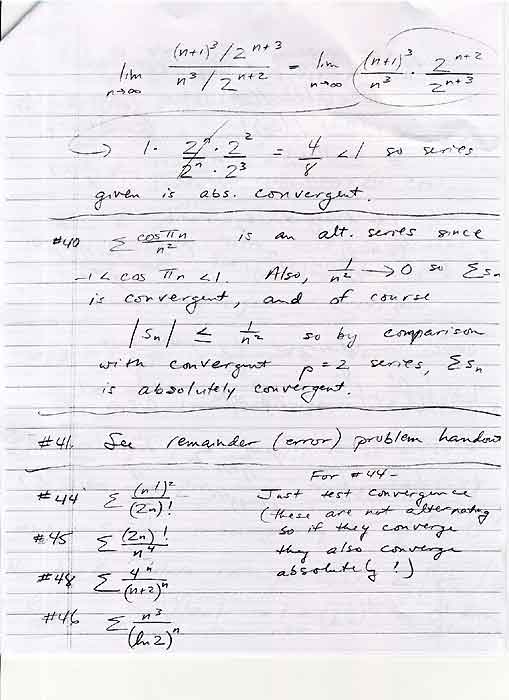 lim n→∞ (n+1)³/2ⁿ⁺³ / n³/2ⁿ⁺² = lim n→∞ (n+1)³/n³ · 2ⁿ⁺²/2ⁿ⁺³
→ 1 · 2ⁿ · 2² / 2ⁿ · 2³ = 4/8 < 1 so series
given is abs. convergent.
#40 Σ cos πn / n² is an alt. series since
-1 < cos πn < 1. Also, 1/n² → 0 so Σsₙ
is convergent, and of course
|sₙ| ≤ 1/n² so by comparison
with convergent p=2 series, Σsₙ
is absolutely convergent.
#41. See remainder (error) problem handout
For #44 -
#44 Σ (n!)²/(2n)! Just test convergence
(these are not alternating
#45 Σ (2n)!/n⁴ so if they converge
they also converge
#48 Σ 4ⁿ/(n+2)ⁿ absolutely!)
#46 Σ n³/(ln 2)ⁿ